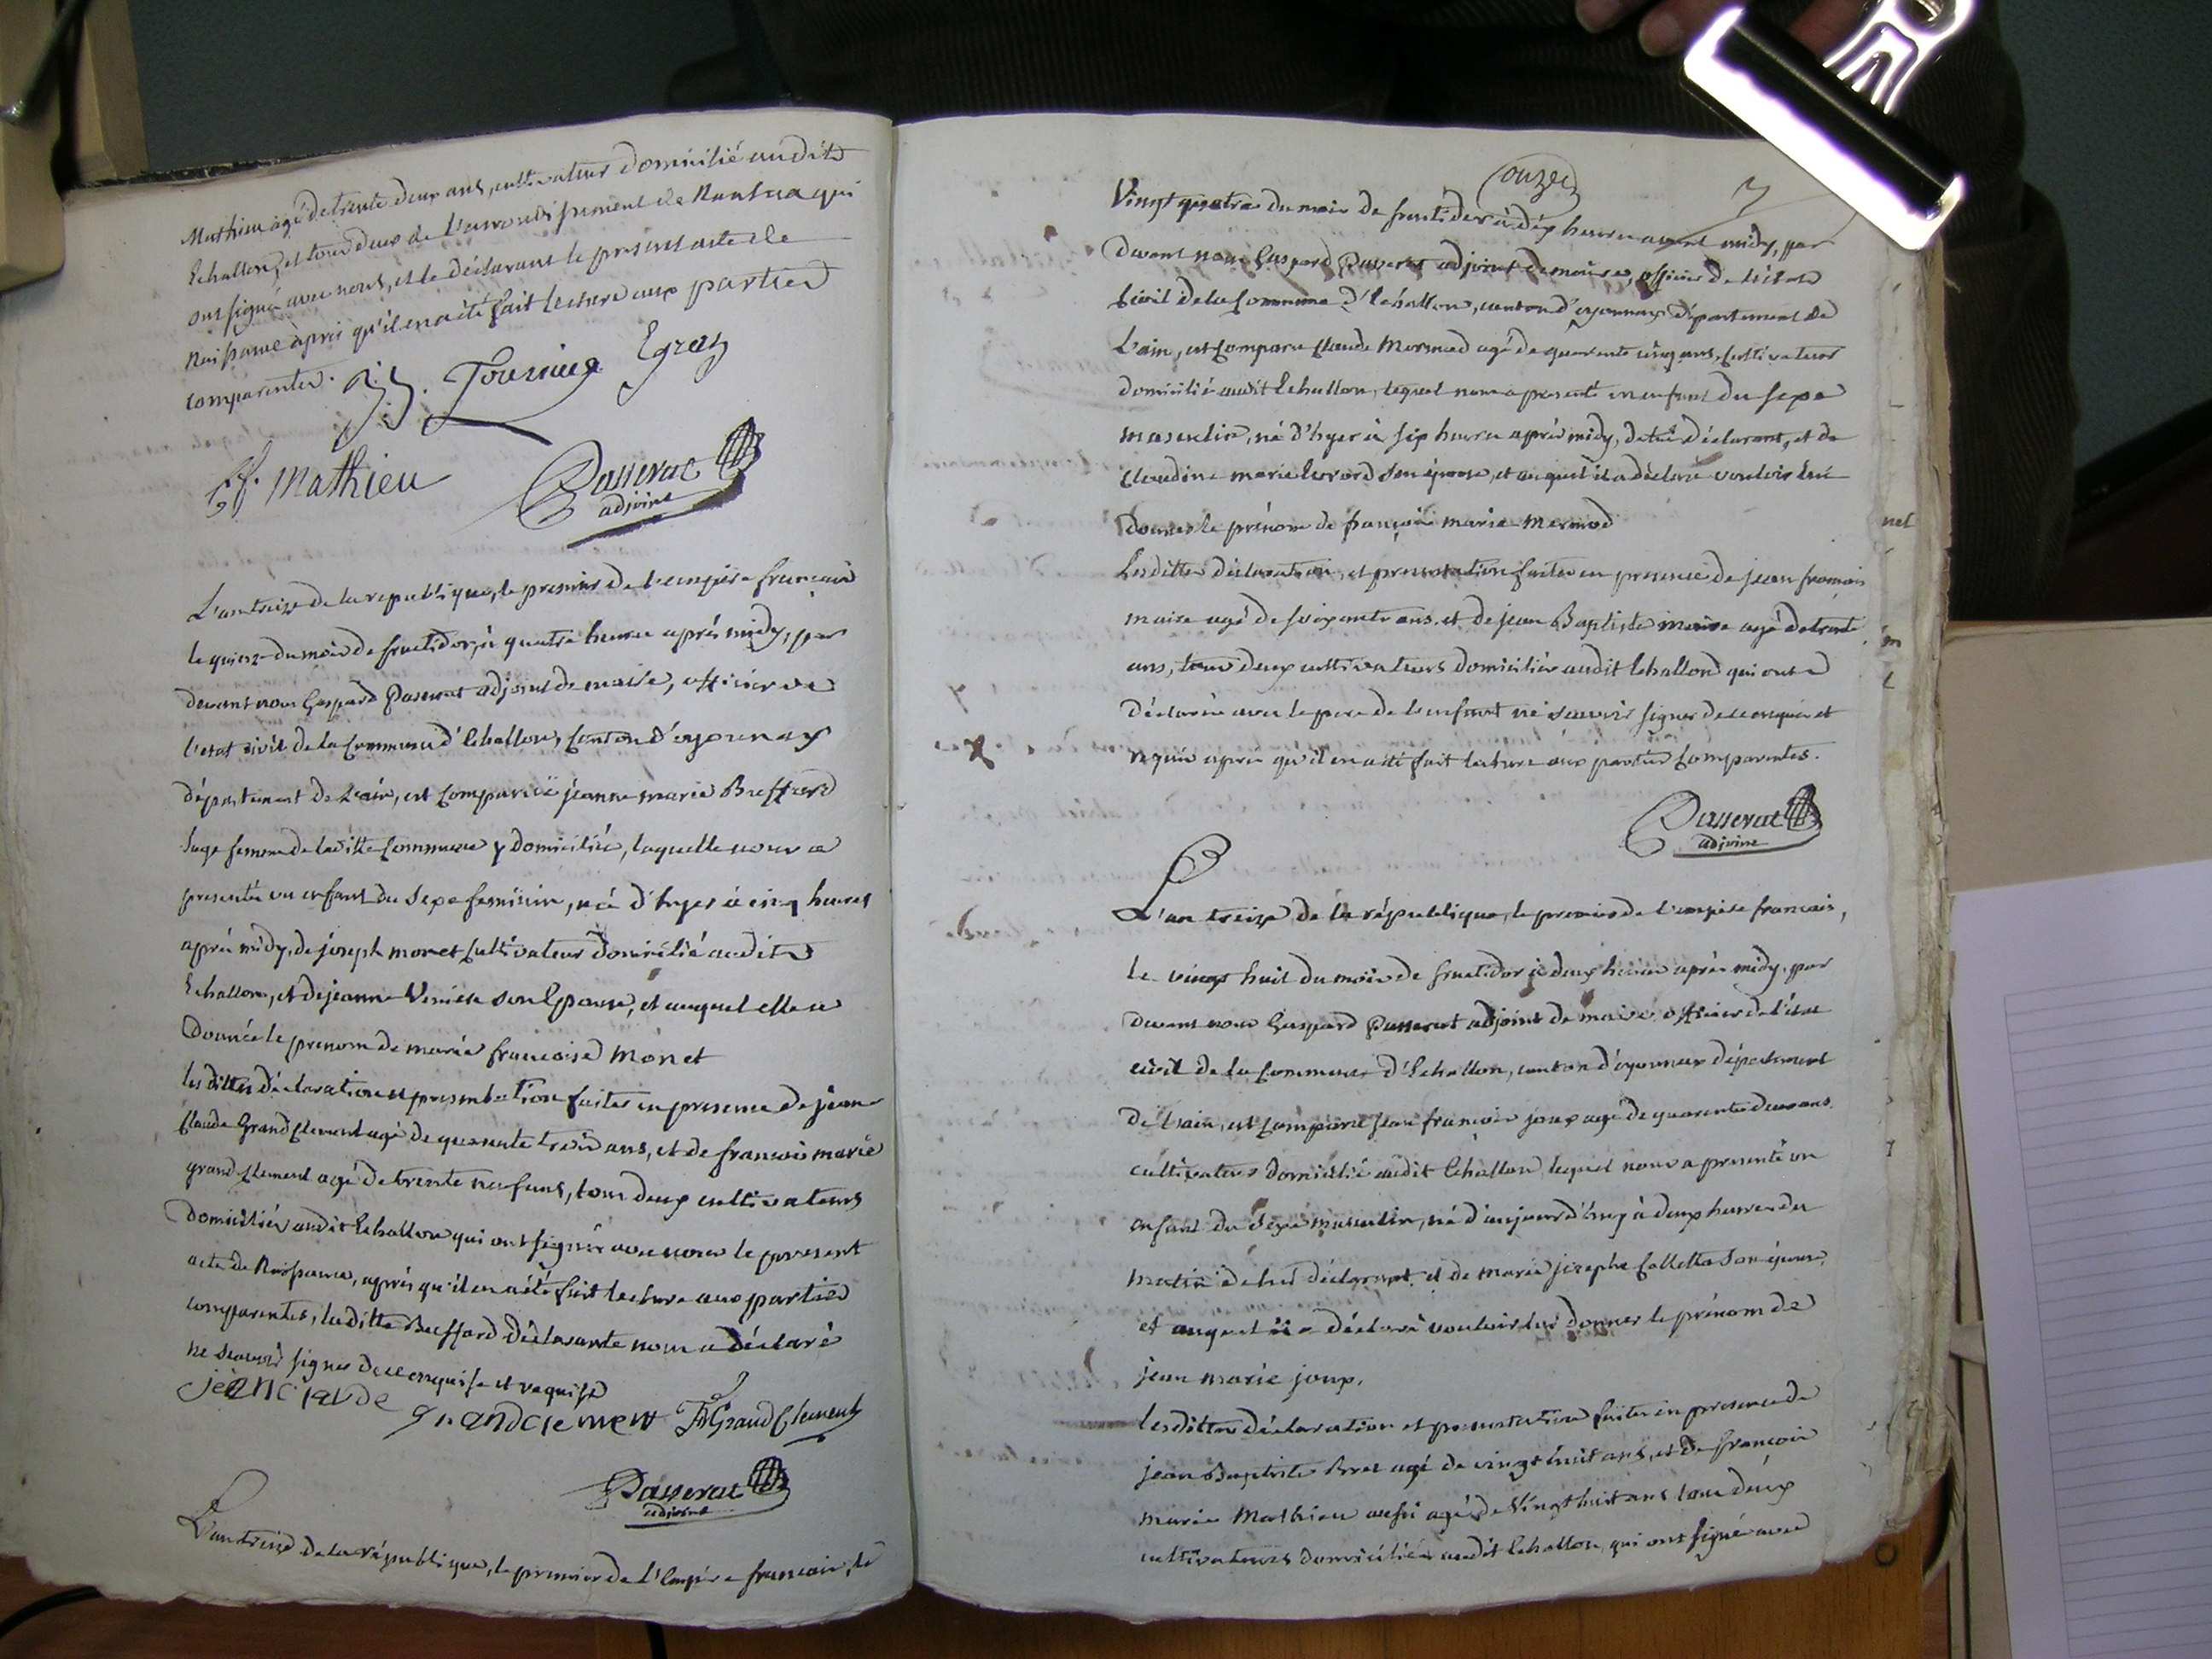 Mathieu agé de trente deux ans, cultivateur domicilié audit
Echallon, et tous deux de l'arrondissement de Nantua qui
ont signé avec nous, et le déclarant le present acte de
Naissance après qu'il en a été fait lecture aux parties
comparentes.
Tournier Egraz
Mathieu Passerat
adjoint
L'an treize de la republique, le premier de l'empire francais
le quinze du mois de fructidor, à quatre heures après midy, par
devant nous Gaspard Passerat adjoint de maire, officier de
l'etat civil de la Commune d'Echallon, Canton d'oyonnax
département de l'ain, est Comparüe jeanne marie Buffard
sage femme de laditte Commune y domiciliée, laquelle nous a
presentée un enfant du sexe feminin, née d'hyer à cinq heures
après midy, de joseph monet Cultivateur domicilié audit
Echallon, et de jeanne son Epouse, et auquel elle a
donnée le prenom de marie francoise monet
les dittes déclaration et presentation faites en presence de jean
Claude Grand Clement agé de quarante trois ans, et de francois marie
grand Clement agé de trente neuf ans, tous deux cultivateurs
domiciliés audit Echallon qui ont signés avec nous le present
acte de Naissance, après qu'il en a été fait lecture aux parties
comparentes, laditte Buffard déclarante nous a déclaré
ne scavoir signer de ce enquise et requise
jean clavde grandclement GrandClement
Passerat
adjoint
L'an treize de la république, le premier de l'Empire francais, le
onze
7
Vingt quatre du mois de fructidor à dix heures avant midy, par
devant nous Gaspard Passerat adjoint de maire, officier de l'état
Civil de la Commune d'Echallon, canton d'oyonnax département de
L'ain, est Comparu Claude Mermod agé de quarante cinq ans, Cultivateur
domicilié audit Echallon, lequel nous a presenté un enfant du sexe
masculin, né d'hyer à six heures après midy, de lui déclarant, et de
Claudine marie son épouse, et auquel il a déclaré vouloir lui
donner le prénom de françois marie Mermod
Lesdittes déclaration et presentation faites en presence de jean francois
maire agé de soixante ans, et de jean Baptiste maire agé de trente
ans, tous deux cultivateurs domiciliés audit Echallon qui ont
déclarés avec le pere de l'enfant ne scavoir signer de ce enquis et
requis après qu'il en a été fait lecture aux parties Comparentes.
Passerat
adjoint
L'an treize de la république, le premier de l'empire francais,
le vingt huit du mois de fructidor à deux heures après midy, par
devant nous Gaspard Passerat adjoint de maire officier de l'état
civil de la Commune d'Echallon, canton d'oyonnax département
de l'ain, est Comparu jean francois joux agé de quarante deux ans,
cultivateur domicilié audit Echallon, lequel nous a presenté un
enfant du sexe masculin, né d'aujourd'huy à deux heures du
matin de lui déclarant et de marie josephe Colletta son épouse,
et auquel il a déclaré vouloir lui donner le prénom de
jean marie joux.
lesdittes déclaration et presentation faites en presence de
jean Baptiste agé de vingt huit ans, et de francois
marie Mathieu aussi agé de vingt huit ans tous deux
cultivateurs domiciliés audit Echallon, qui ont signé avec